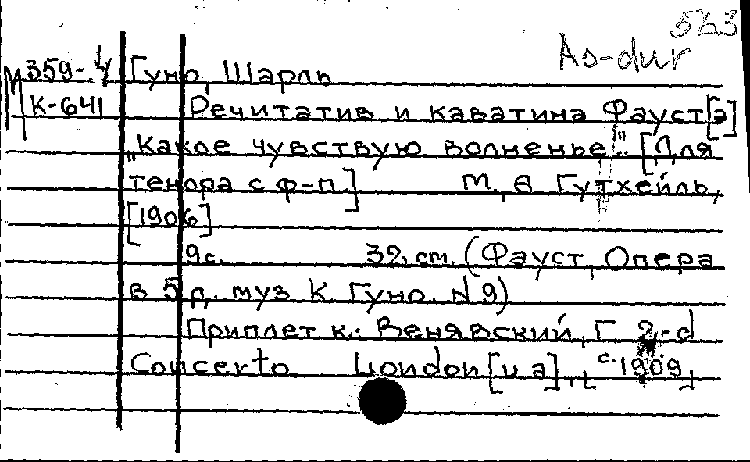 563
As-dur
М 359-4 Гуно, Шарль
К-641 Речитатив и каватина Фауст[а]
"Какое чувствую волненье". [Для
тенора с ф-п.] М., А. Гутхейль,
[1906]
9с. 32. см. (Фауст, Опера
в 5 д. муз К Гуно. N 9)
Приплет к.: Венявский, Г 2-d
Concerto London [u a], [с.1909]